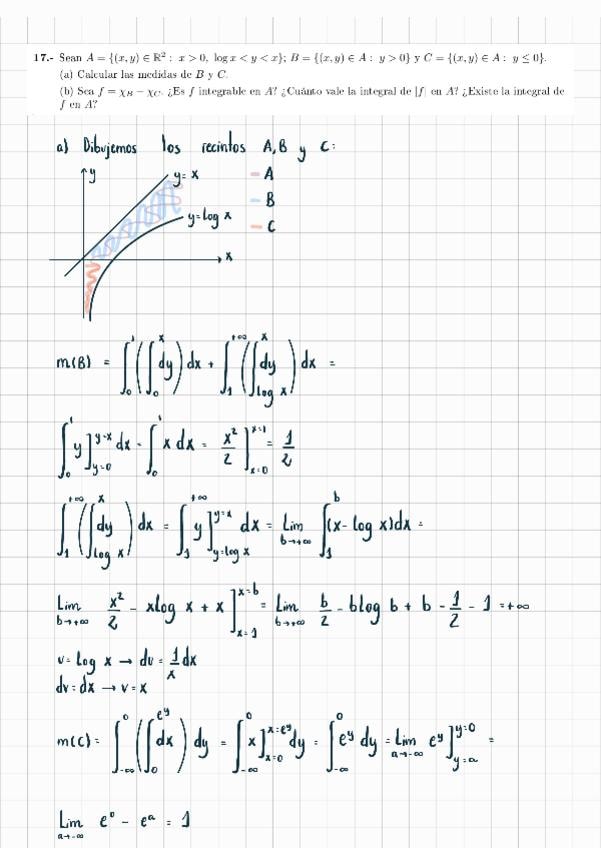 17.- Sean A = {(x, y) ∈ ℝ² : x > 0, log x < y < x}; B = {(x, y) ∈ A : y > 0} y C = {(x, y) ∈ A : y ≤ 0}.
(a) Calcular las medidas de B y C.
(b) Sea f = χ_B − χ_C. ¿Es f integrable en A? ¿Cuánto vale la integral de |f| en A? ¿Existe la integral de
f en A?
a) Dibujemos los recintos A, B y C:
y
y = x
y = log x
x
A
B
C
m(B) = ∫_0^1 (∫_0^x dy) dx + ∫_1^{+∞} (∫_{log x}^x dy) dx =
∫_0^1 y]_{y=0}^{y=x} dx = ∫_0^1 x dx = x²/2 ]_{x=0}^{x=1} = 1/2
∫_1^{+∞} (∫_{log x}^x dy) dx = ∫_1^{+∞} y]_{y=log x}^{y=x} dx = Lim_{b→+∞} ∫_1^b (x - log x) dx =
Lim_{b→+∞} x²/2 - x log x + x ]_{x=1}^{x=b} = Lim_{b→+∞} b/2 - b log b + b - 1/2 - 1 = +∞
u = Log x → du = 1/x dx
dv = dx → v = x
m(C) = ∫_{-∞}^0 (∫_0^{e^y} dx) dy = ∫_{-∞}^0 x]_{x=0}^{x=e^y} dy = ∫_{-∞}^0 e^y dy = Lim_{a→-∞} e^y ]_{y=a}^{y=0} =
Lim_{a→-∞} e^0 - e^a = 1